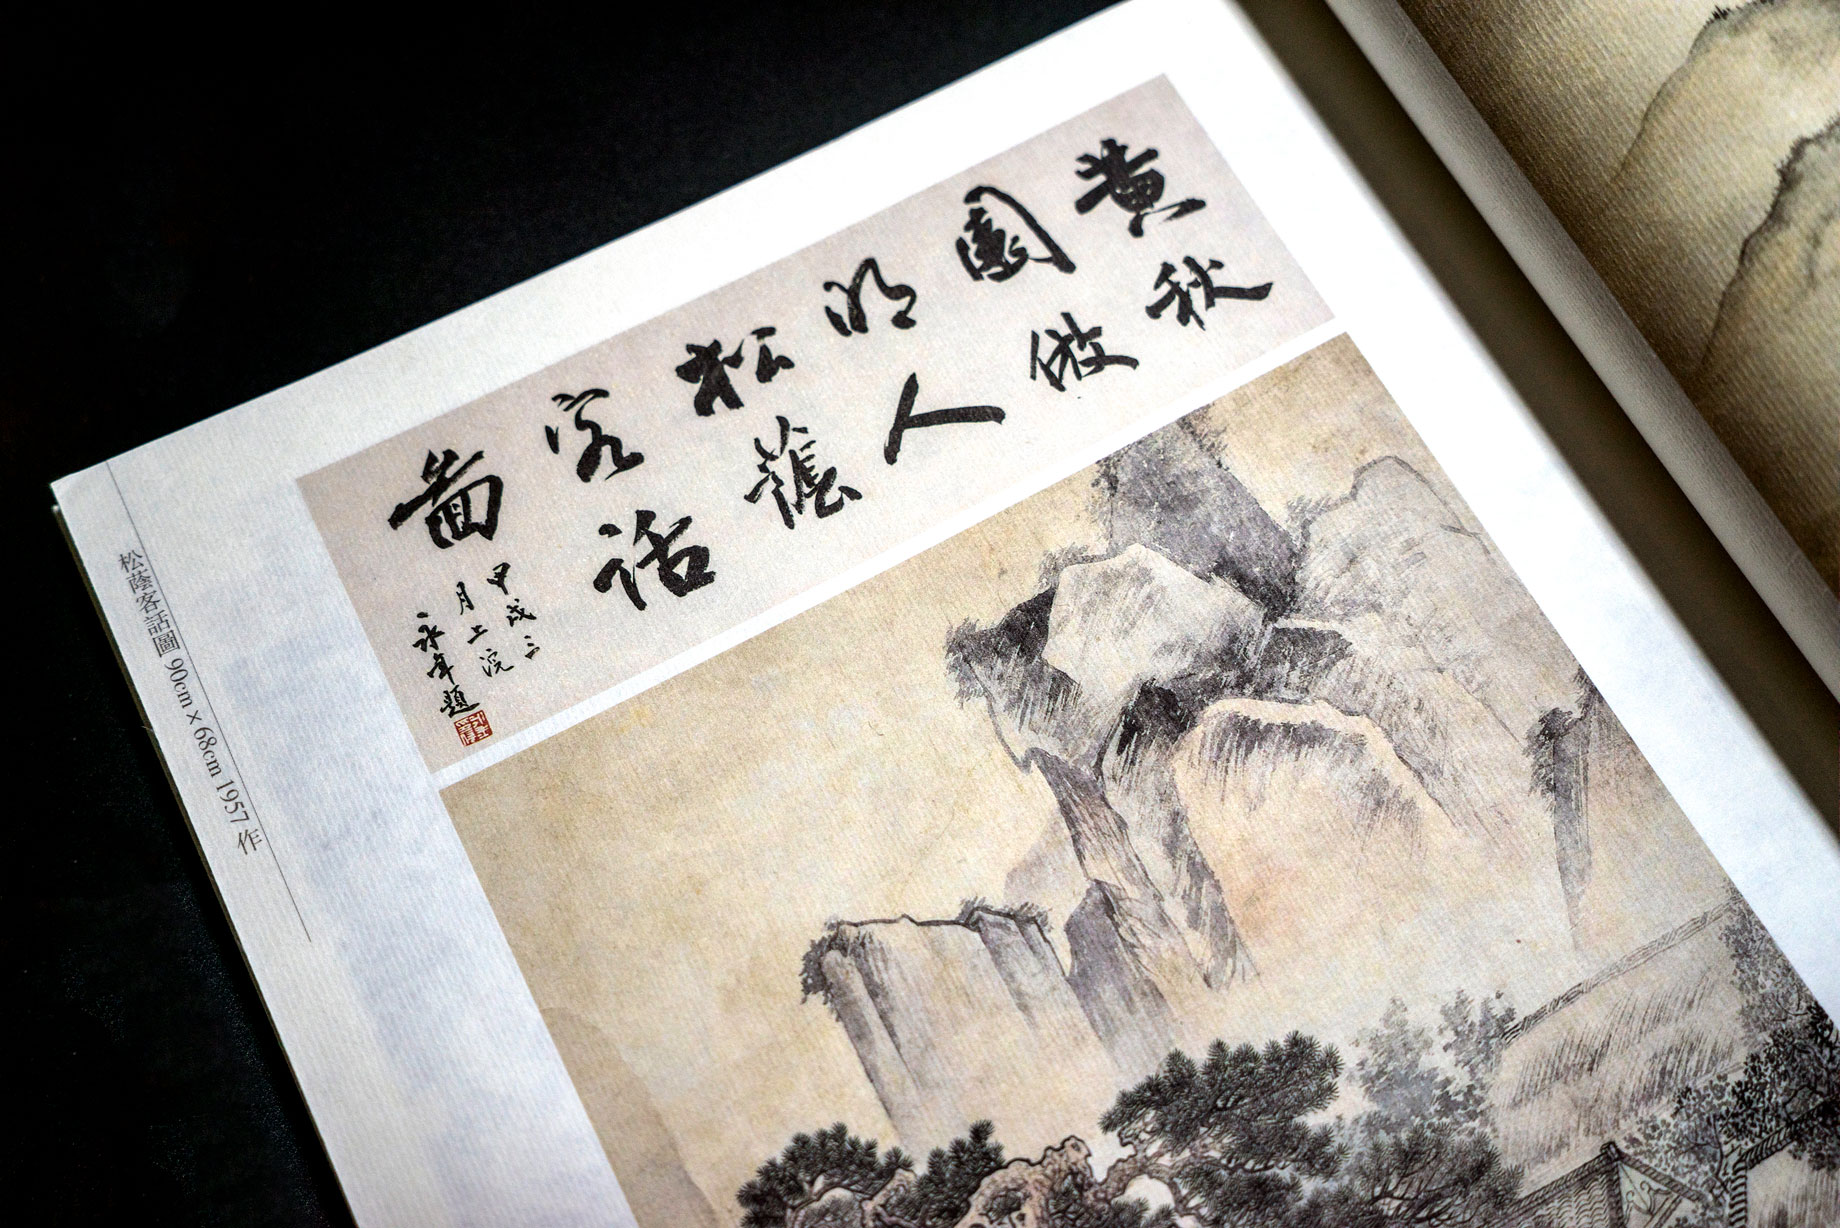 黄秋
園倣
明人
松蔭
客話
啚
甲戌三
月上浣
永年題
松蔭客話圖 90cm×68cm 1957 作